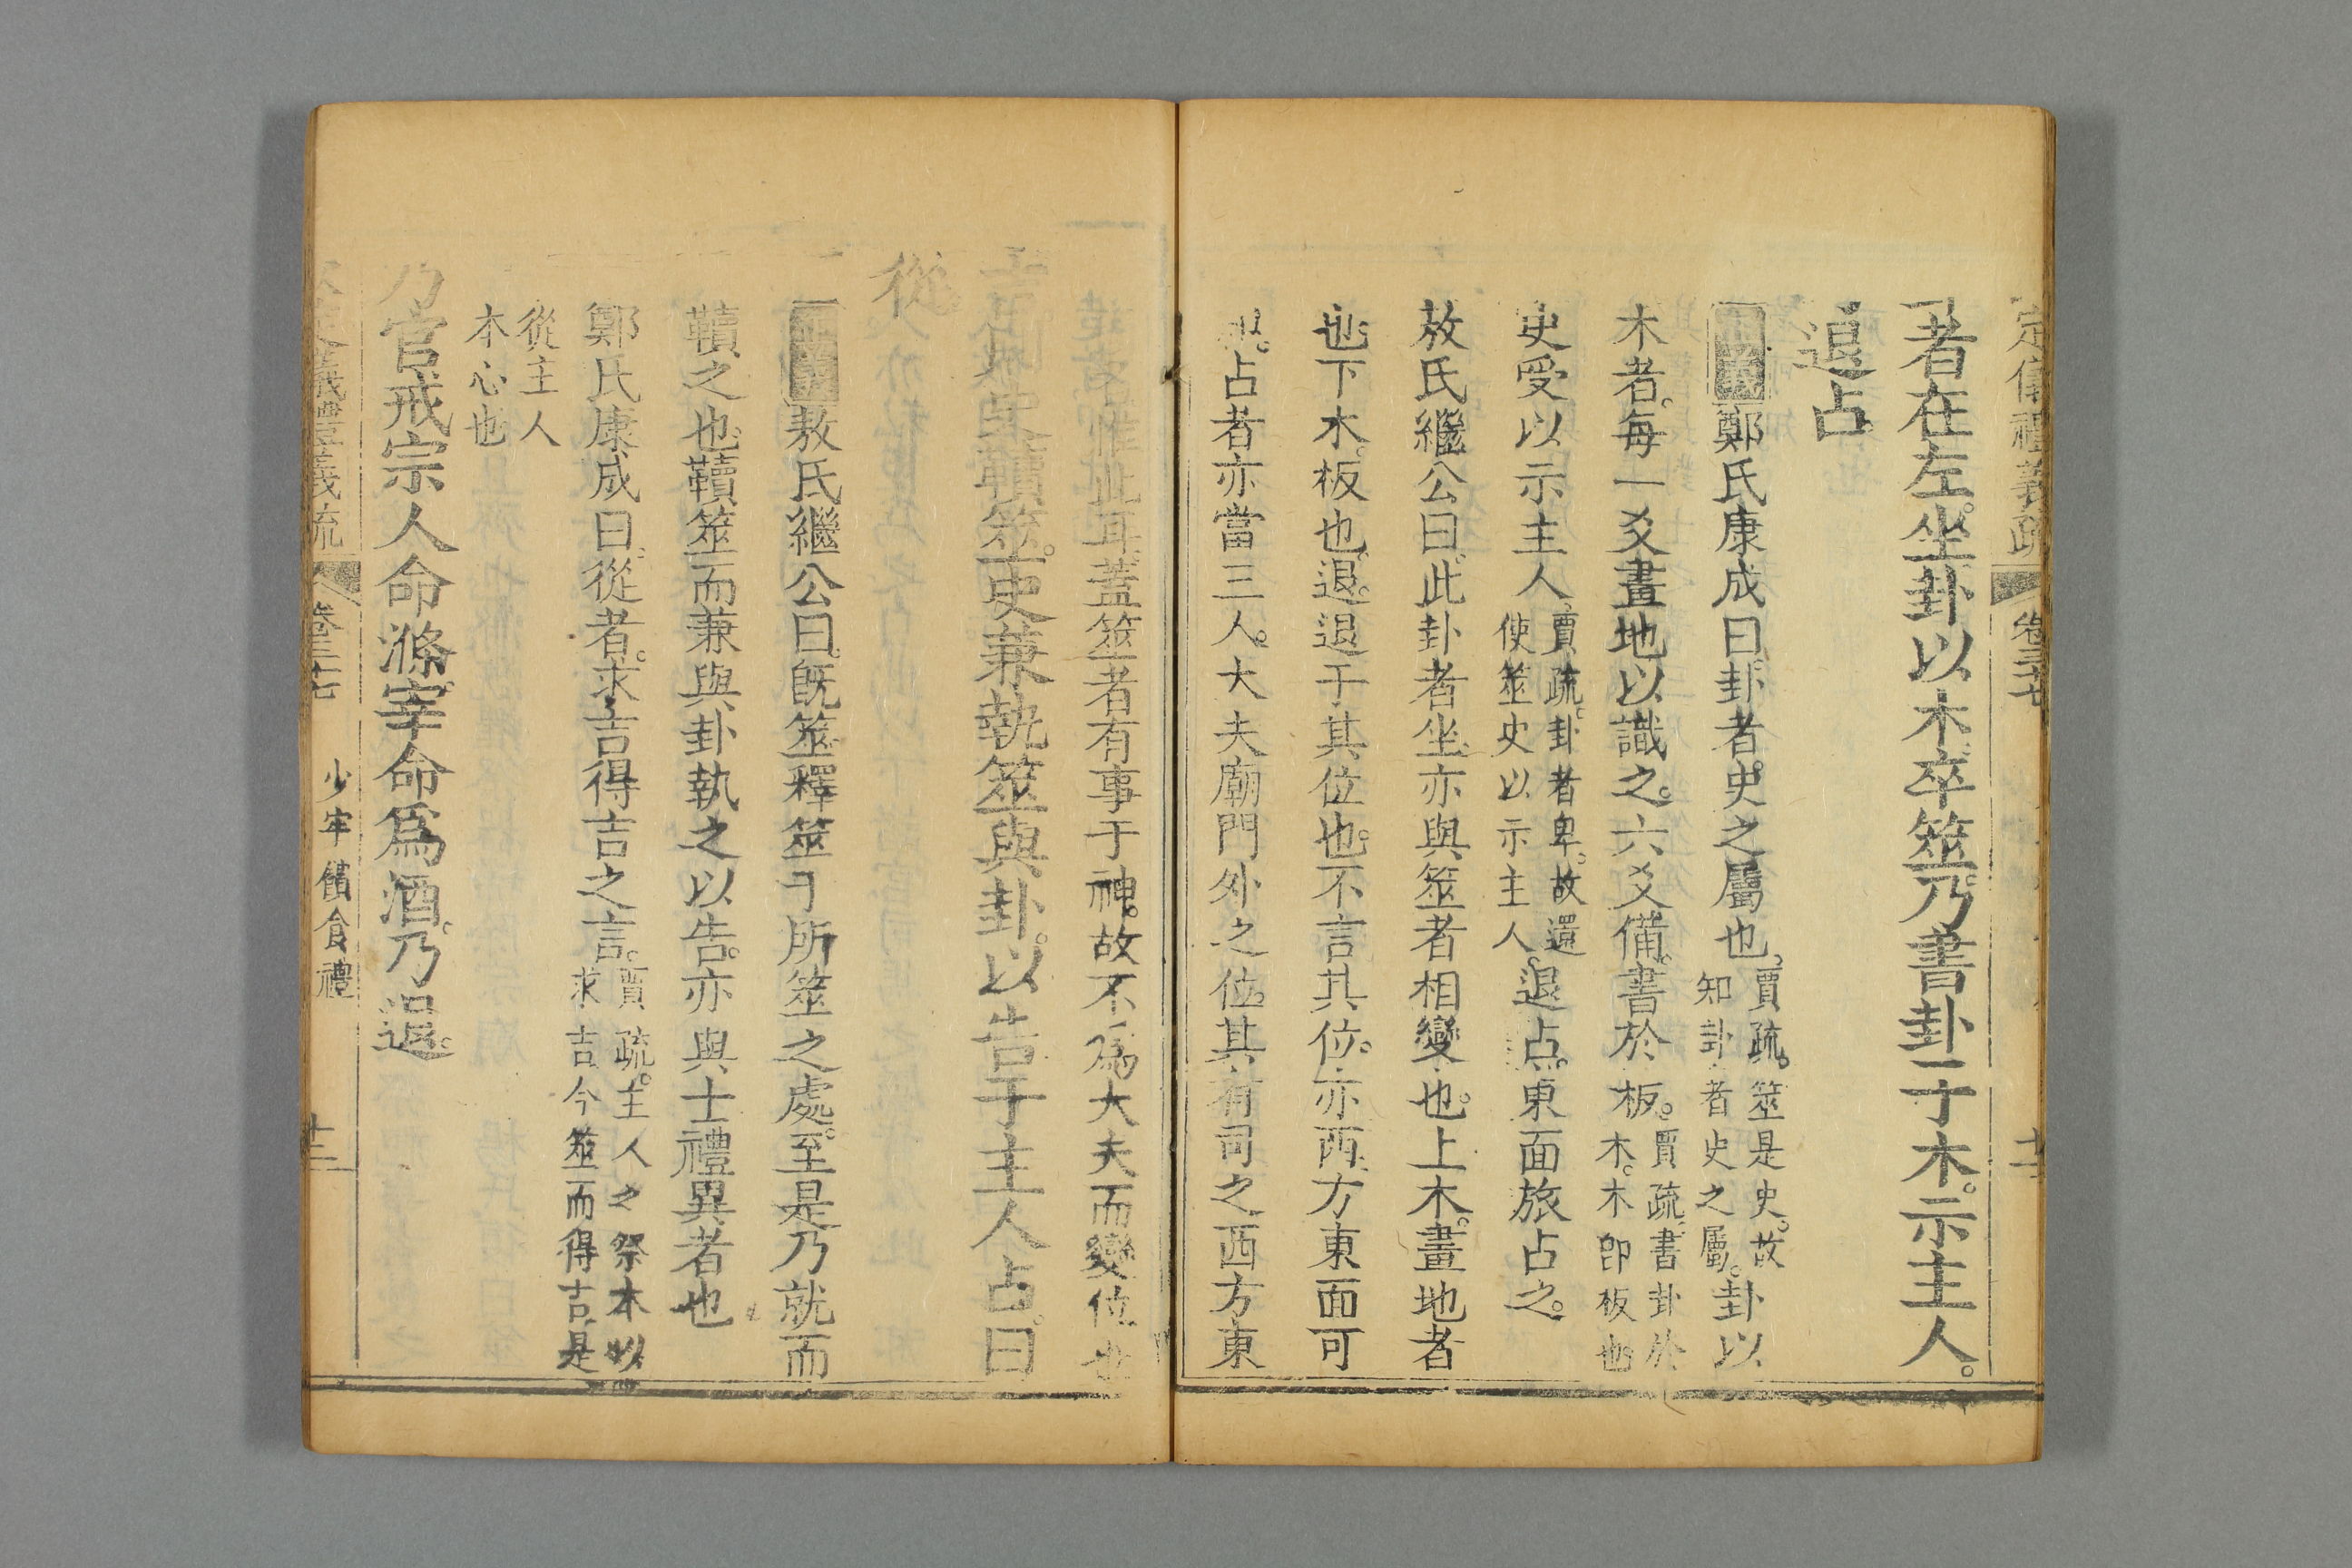 定儀禮義疏 卷三十七
者在左。坐卦以木。卒筮。乃書卦于木。示主人。
退占。
鄭氏康成曰。卦者。史之屬也。賈疏。筮是史。故知卦者史之屬。卦以
木者。每一爻畫地以識之。六爻備。書於板。賈疏。書卦於木。木即板也
史受以示主人。賈疏。卦者卑。故還使筮史以示主人。退占。東面旅占之。
敖氏繼公曰。此卦者坐。亦與筮者相變也。上木。畫地者
也。下木。板也。退。退于其位也。不言其位。亦西方東面可
知。占者亦當三人。大夫廟門外之位。其有司之西方東
此耳。蓋筮者有事于神。故不爲大夫而變位也
吉。則史韇筮。史兼執筮與卦。以告于主人。占曰
從。
敖氏繼公曰。旣筮釋筮于所筮之處。至是乃就而
韇之也。韇筮而兼與卦執之以告。亦與士禮異者也
鄭氏康成曰。從者。求吉得吉之言。賈疏。主人之祭本以求吉今筮而得吉是
從主人本心也
乃官戒。宗人命滌。宰命爲酒。乃退。
義禮義疏 卷三十七 少牢饋食禮 十二